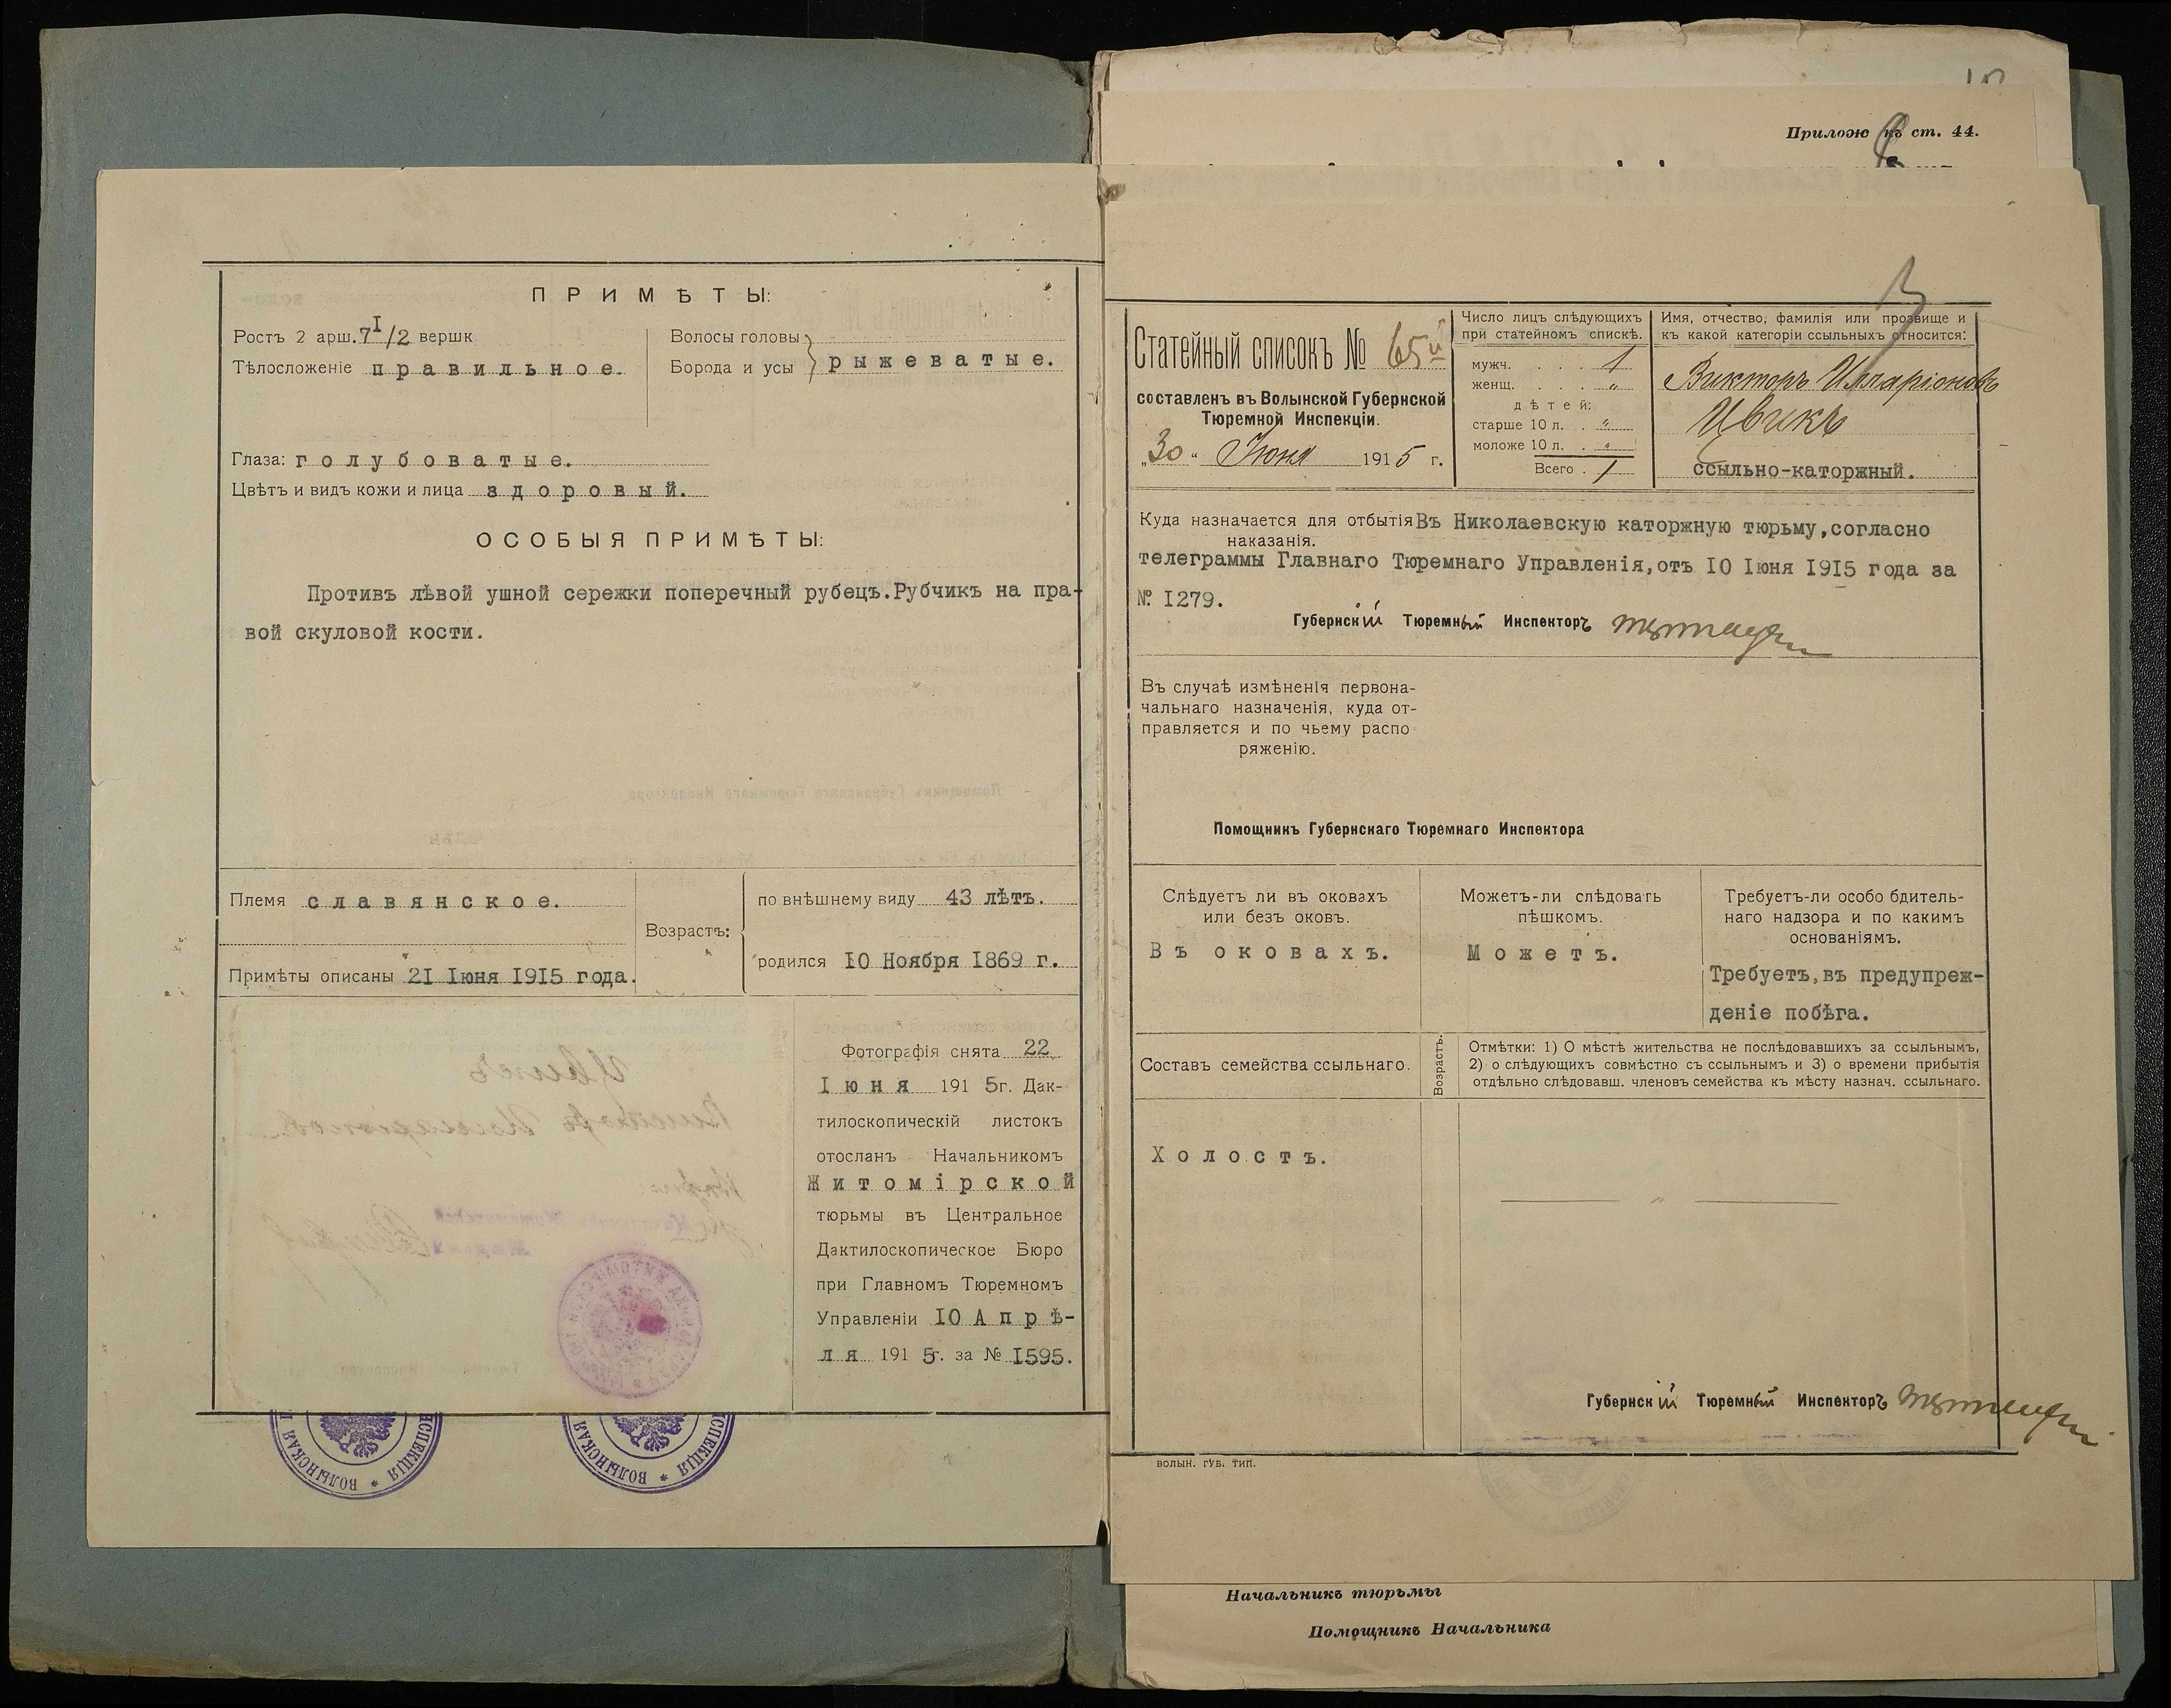 П Р И М Ѣ Т Ы:
Ростъ 2 арш. 7 I/2 вершк
Тѣлосложеніе правильное.
Волосы головы
Борода и усы } рыжеватые.
Глаза: голубоватые.
Цвѣтъ и видъ кожи и лица здоровый.
ОСОБЫЯ ПРИМѢТЫ:
Противъ лѣвой ушной сережки поперечный рубецъ.Рубчикъ на пра-
вой скуловой кости.
Племя славянское.
Примѣты описаны 2I Іюня I9I5 года.
Возрастъ:
по внѣшнему виду 43 лѣтъ.
родился IO Ноября I869 г.
Фотографія снята 22
Іюня 1915г. Дак-
тилоскопическій листокъ
отосланъ Начальникомъ
Житомірской
тюрьмы въ Центральное
Дактилоскопическое Бюро
при Главномъ Тюремномъ
Управленіи IO Апрѣ-
ля 1915г. за № I595.
ВОЛЫНСКАЯ
СПЕКЦІЯ
ВОЛЫНСКАЯ
СПЕКЦІЯ
Прилож къ ст. 44.
Статейный списокъ № 65й
составленъ въ Волынской Губернской
Тюремной Инспекціи.
„30“ Іюня 1915 г.
Число лицъ слѣдующихъ
при статейномъ спискѣ.
мужч. . . . 1
женщ. . . . „
дѣтей:
старше 10 л. . „
моложе 10 л. . „
Всего . 1
Имя, отчество, фамилія или прозвище и
къ какой категоріи ссыльныхъ относится:
Викторъ Илларіоновъ
Цвикъ
ссыльно-каторжный.
Куда назначается для отбытія
наказанія.
Въ Николаевскую каторжную тюрьму,согласно
телеграммы Главнаго Тюремнаго Управленія,отъ IO Іюня I9I5 года за
№ I279.
Губернскій Тюремный Инспекторъ
Въ случаѣ измѣненія первона-
чальнаго назначенія, куда от-
правляется и по чьему распо
ряженію.
Помощникъ Губернскаго Тюремнаго Инспектора
Слѣдуетъ ли въ оковахъ
или безъ оковъ.
Въ оковахъ.
Можетъ-ли слѣдовать
пѣшкомъ.
Можетъ.
Требуетъ-ли особо бдитель-
наго надзора и по какимъ
основаніямъ.
Требуетъ,въ предупреж-
деніе побѣга.
Составъ семейства ссыльнаго.
Возрастъ.
Отмѣтки: 1) О мѣстѣ жительства не послѣдовавшихъ за ссыльнымъ,
2) о слѣдующихъ совмѣстно съ ссыльнымъ и 3) о времени прибытія
отдѣльно слѣдовавш. членовъ семейства къ мѣсту назнач. ссыльнаго.
Холостъ.
Губернскій Тюремный Инспекторъ
ВОЛЫН. ГУБ. ТИП.
Начальникъ тюрьмы
Помощникъ Начальника